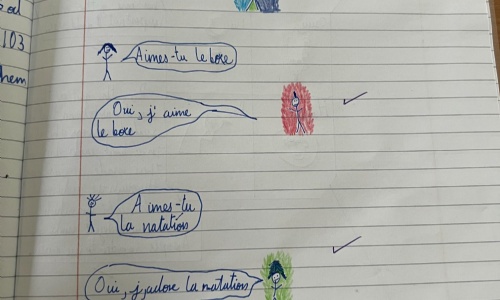 103
hem
Aimes-tu le boxe
Oui, j'aime
le boxe
Aimes-tu
la natation
Oui, j'adore la natation